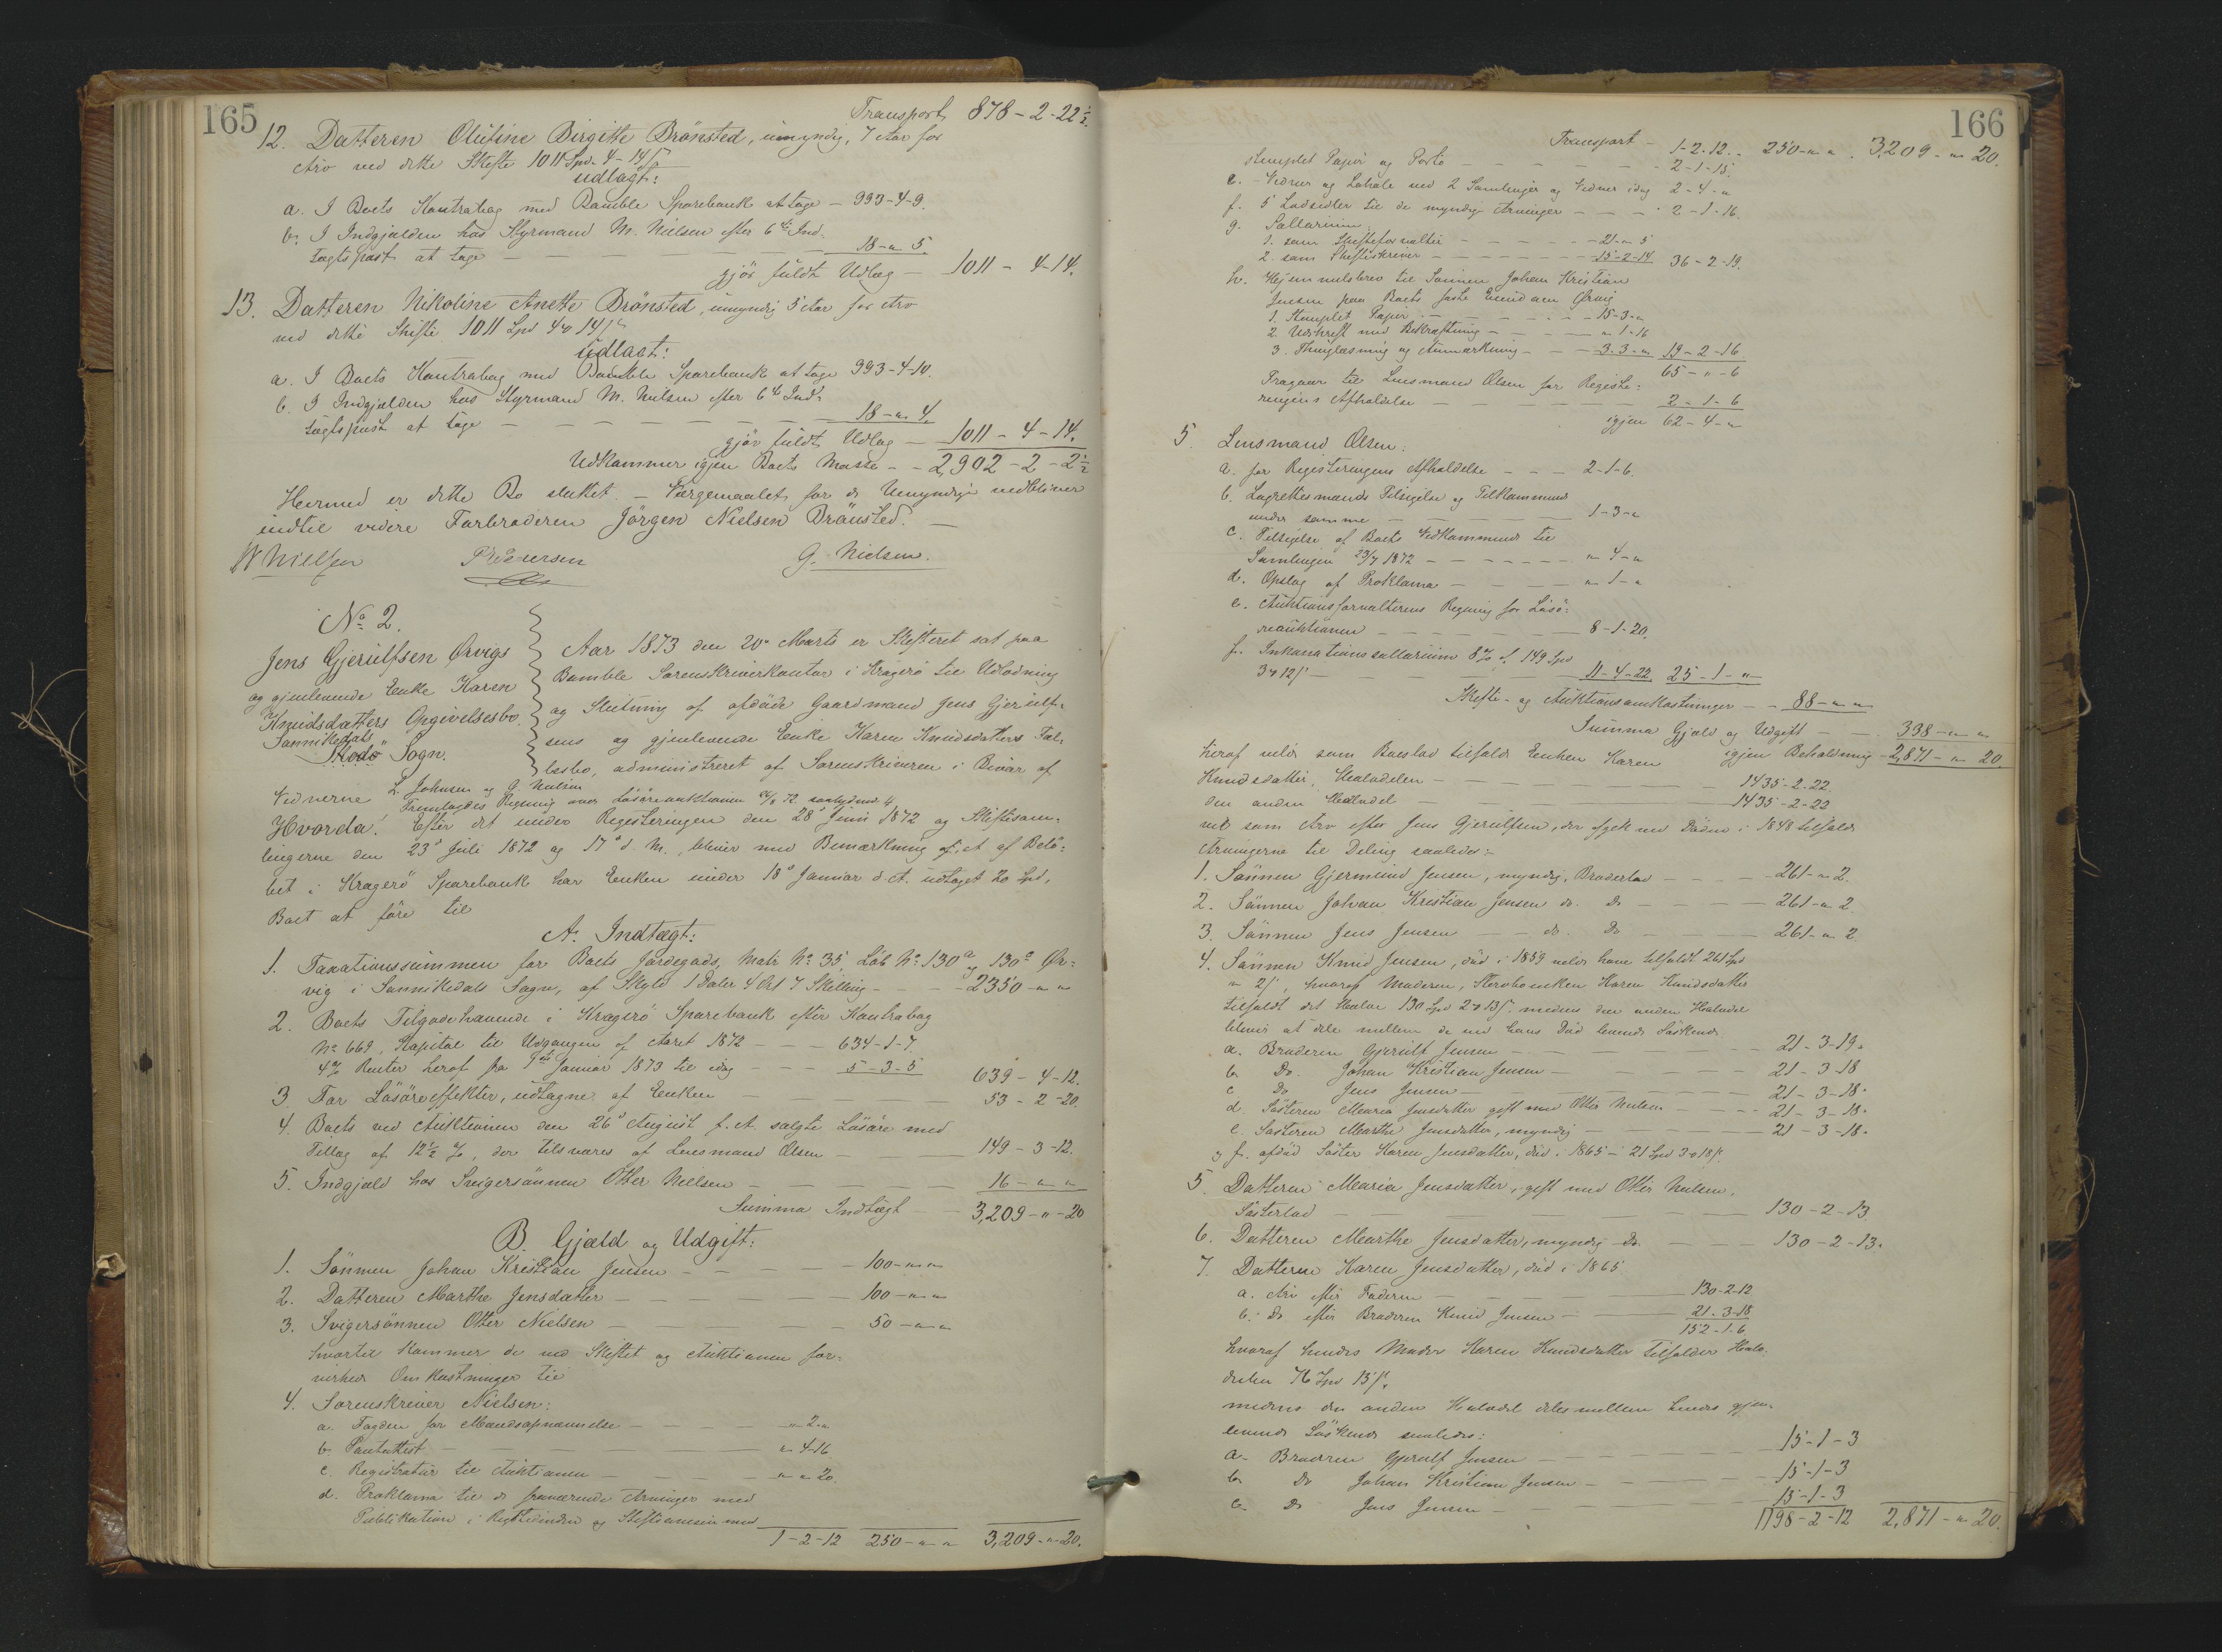 165
Transport 878-2-22½.
12. Datteren Olufine Birgitte Brönsted, umyndig, 7 Aar for
Arv ved dette Skifte 1011 Spd. 4-14/ß
udlagt:
a. I Boets Kontrabog med Bamble Sparebank at tage - 993-4-9.
b. I Indgjælden hos Styrmand M. Nielsen efter 6te Ind:
tægtspost at tage - - - 18-"-5.
gjör fuldt Udlæg - 1011-4-14.
13. Datteren Nikoline Anette Brönsted, umyndig 5 Aar for Arv
ved dette Skifte 1011 Spd 4 " 14/ß
udlagt:
a. I Boets Kontrabog med Bamble Sparebank at tage 993-4-10.
b. I Indgjælden hos Styrmand M. Nielsen efter 6te Ind:
tægtspost at tage - - - 18-"-4.
gjör fuldt Udlæg - 1011-4-14.
Udkommer igjen Boets Masse - - 2,902-2-2½
Hermed er dette Bo sluttet. - Værgemaalet for de Umyndige vedbliver
indtil videre Farbroderen Jörgen Nielsen Brönsted. -
W Nielsen P Pedersen G. Nielsen.
No 2.
Jens Gjerulfsen Ørvigs
og gjenlevende Enke Karen
Knudsdatters Opgivelsesbo.
Sannikedals
Skodö Sogn.
Aar 1873 den 20de Marts er Skifteret sat paa
Bamble Sorenskriverkontor i Kragerö til Udlodning
og Slutning af afdöde Gaardmand Jens Gjerulf-
sens og gjenlevende Enke Karen Knudsdatters Fæl-
lesbo, administreret af Sorenskriveren i Overvær af
Vidnerne L. Johnsen og G. Nielsen
Fremlagdes Regning over Lösöreauktionen 26/8 72
Hvorda: Efter det under Registeringen den 28de Juni 1872 og Skiftesam-
lingerne den 23de Juli 1872 og 17de d. M., bliver med Bemærkning af, at af Belö:
bet i Kragerö Sparebank har Enken under 18de Januar d. A. udtaget 20 Spd,
Boet at före til
A. Indtægt:
1. Taxationssummen for Boets Jordegods, Matr No 35, Löb No 130a og 130c Ør-
vig i Sannikedals Sogn, af Skyld 1 Daler 4 Ort 7 Skilling - - - 2350-"-"
2. Boets Tilgodehavende i Kragerö Sparebank efter Kontrabog
No 669, Kapital til Udgangen af Aaret 1872 - - - 634-1-7.
4% Renter heraf fra 1ste Januar 1873 til idag - - - 5-3-5 639-4-12.
3. For Lösöreeffekter, udtagne af Enken - - - 53-2-20.
4. Boets ved Auktionen den 26de August f. A. solgte Lösöre med
Tillæg af 12½ %, der tilsvares af Lensmand Olsen - - 149-3-12.
5. Indgjæld hos Svigersönnen Otter Nielsen - - - 16-"-"
Summa Indtægt - - 3,209-"-20
B. Gjæld og Udgift:
1. Sönnen Johan Kristian Jensen - - - 100-"-"
2. Datteren Marthe Jensdatter - - - 100-"-"
3. Svigersönnen Otter Nielsen - - - 50-"-"
hvortil kommer de ved Skiftet og Auktionen for-
nirhed Omkostninger til
4. Sorenskriver Nielsen:
a. Fogden for Mandsopnævnelse - - - "-2-"
b. Panteattest - - - "-4-16
c. Registratur til Auktionen - - - "-"-20.
d. Proklama til de fraværende Arvinger med
Publikation i Rigstidenden og med
1-2-12 250-"-" 3,209-"-20.
166
Transport - 1-2-12. 250-"-". 3,209-"-20.
stemplet Papir og Porto - - - 2-1-15.
e. Vidner og Lokale ved 2 Samlinger og Vidner idag 2-4-"
f. 5 Lodsedler til de myndige Arvinger - - - 2-1-16.
g. Sallarium:
1. som Skifteforvalter - - - 21-"-5
2. som Skifteskriver - - - 15-2-14 36-2-19.
h. Hjemmelsbrev til Sönnen Johan Kristian
Jensen paa Boets faste Eiendom Ørvig
1. Stemplet Papir - - - 15-3-"
2. Udskrift med Bekræftning - - - "-1-16
3. Thinglæsning og Anmærkning - - 3-3-" 19-2-16
65-"-6
Fragaar til Lensmand Olsen for Registe:
ringens Afholdelse - - - 2-1-6
igjen 62-4-"
5. Lensmand Olsen:
a. for Registeringens Afholdelse - - - 2-1-6.
b. Lagrettesmænds Tilsigelse og Tilkommende
under samme - - - 1-3-"
c. Tilsigelse af Boets Vedkommende til
Samlingen 23/7 1872 - - - "-4-"
d. Opslag af Proklama - - - "-1-"
e. Auktionsforvalterens Regning for Lösö:
reauktionen - - - 8-1-20.
f. Inkassationssallarium 8% af 149 Spd
3 " 12/ß - - - 11-4-22 25-1-"
Skifte- og Auktionsomkostninger - - 88-"-"
Summa Gjæld og Udgift - - 338-"-"
igjen Beholdning - 2,871-"-20
heraf udlæg som Boeslod tilfalder Enken Karen
Knudsdatter Halvdelen - - - 1435-2-22
den anden Halvdel - - - 1435-2-22
ved som Arv efter Jens Gjerulfsen, der afgik ved Döden i 1848 tilfalde
Arvingerne til Deling saaledes:
1. Sönnen Gjermund Jensen, myndig, Broderlod - - - 261-"-2.
2. Sönnen Johan Kristian Jensen do. Do - - - 261-"-2.
3. Sönnen Jens Jensen - - do. Do - - - 261-"-2
4. Sönnen Knud Jensen, död i 1859 vilde have tilfaldt 261 Spd
" 2/ß, hvoraf Moderen, Karen Knudsdatter
tilfaldt det Halve 130 Spd 2 " 13/ß. medens den anden Halvdel
bliver at dele mellem de ved hans Död levende Söskende
a. Broderen Gjerulf Jensen - - - 21-3-19.
b. Do. Johan Kristian Jensen - - - 21-3-18
c. Do Jens Jensen - - - 21-3-18.
d. Södsteren Maria Jensdatter gift med Otter Nielsen - - - 21-3-18.
e. Södsteren Marthe Jensdatter, myndig - - - 21-3-18.
og f. afdöd Söster Karen Jensdatter, död i 1865 - 21 Spd 3 " 18/ß.
5. Datteren Maria Jensdatter, gift med Otter Nielsen,
Södsterlod - - - 130-2-13
6. Datteren Marthe Jensdatter, myndig Do. - - - 130-2-13.
7. Datteren Karen Jensdatter, död i 1865
a. Arv efter Faderen - - - 130-2-12
b. Do efter Broderen Knud Jensen - - - 21-3-18
152-1-6
hvoraf hendes Moder Karen Knudsdatter tilfalder Halv-
delen 76 Spd 15/ß,
medens den anden Halvdel deles mellem hendes gjen-
levende Söskende saaledes:
a. Broderen Gjerulf Jensen - - - 15-1-3
b. Do Johan Kristian Jensen - - - 15-1-3
c. Do Jens Jensen - - - 15-1-3
1198-2-12 2,871-"-20.